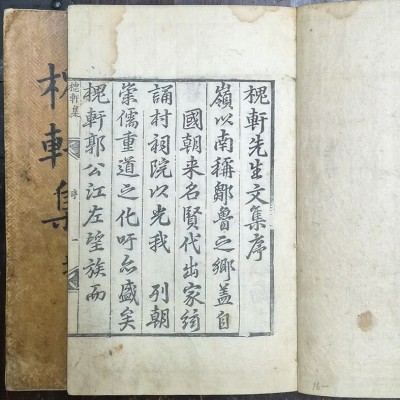 槐軒先生文集序
嶺以南稱鄒魯之鄉盖自
國朝来名賢代出家絃
誦村祠院以光我 列朝
崇儒重道之化吁亦盛矣
槐軒郭公江左望族而
槐軒集 序 一
槐軒集